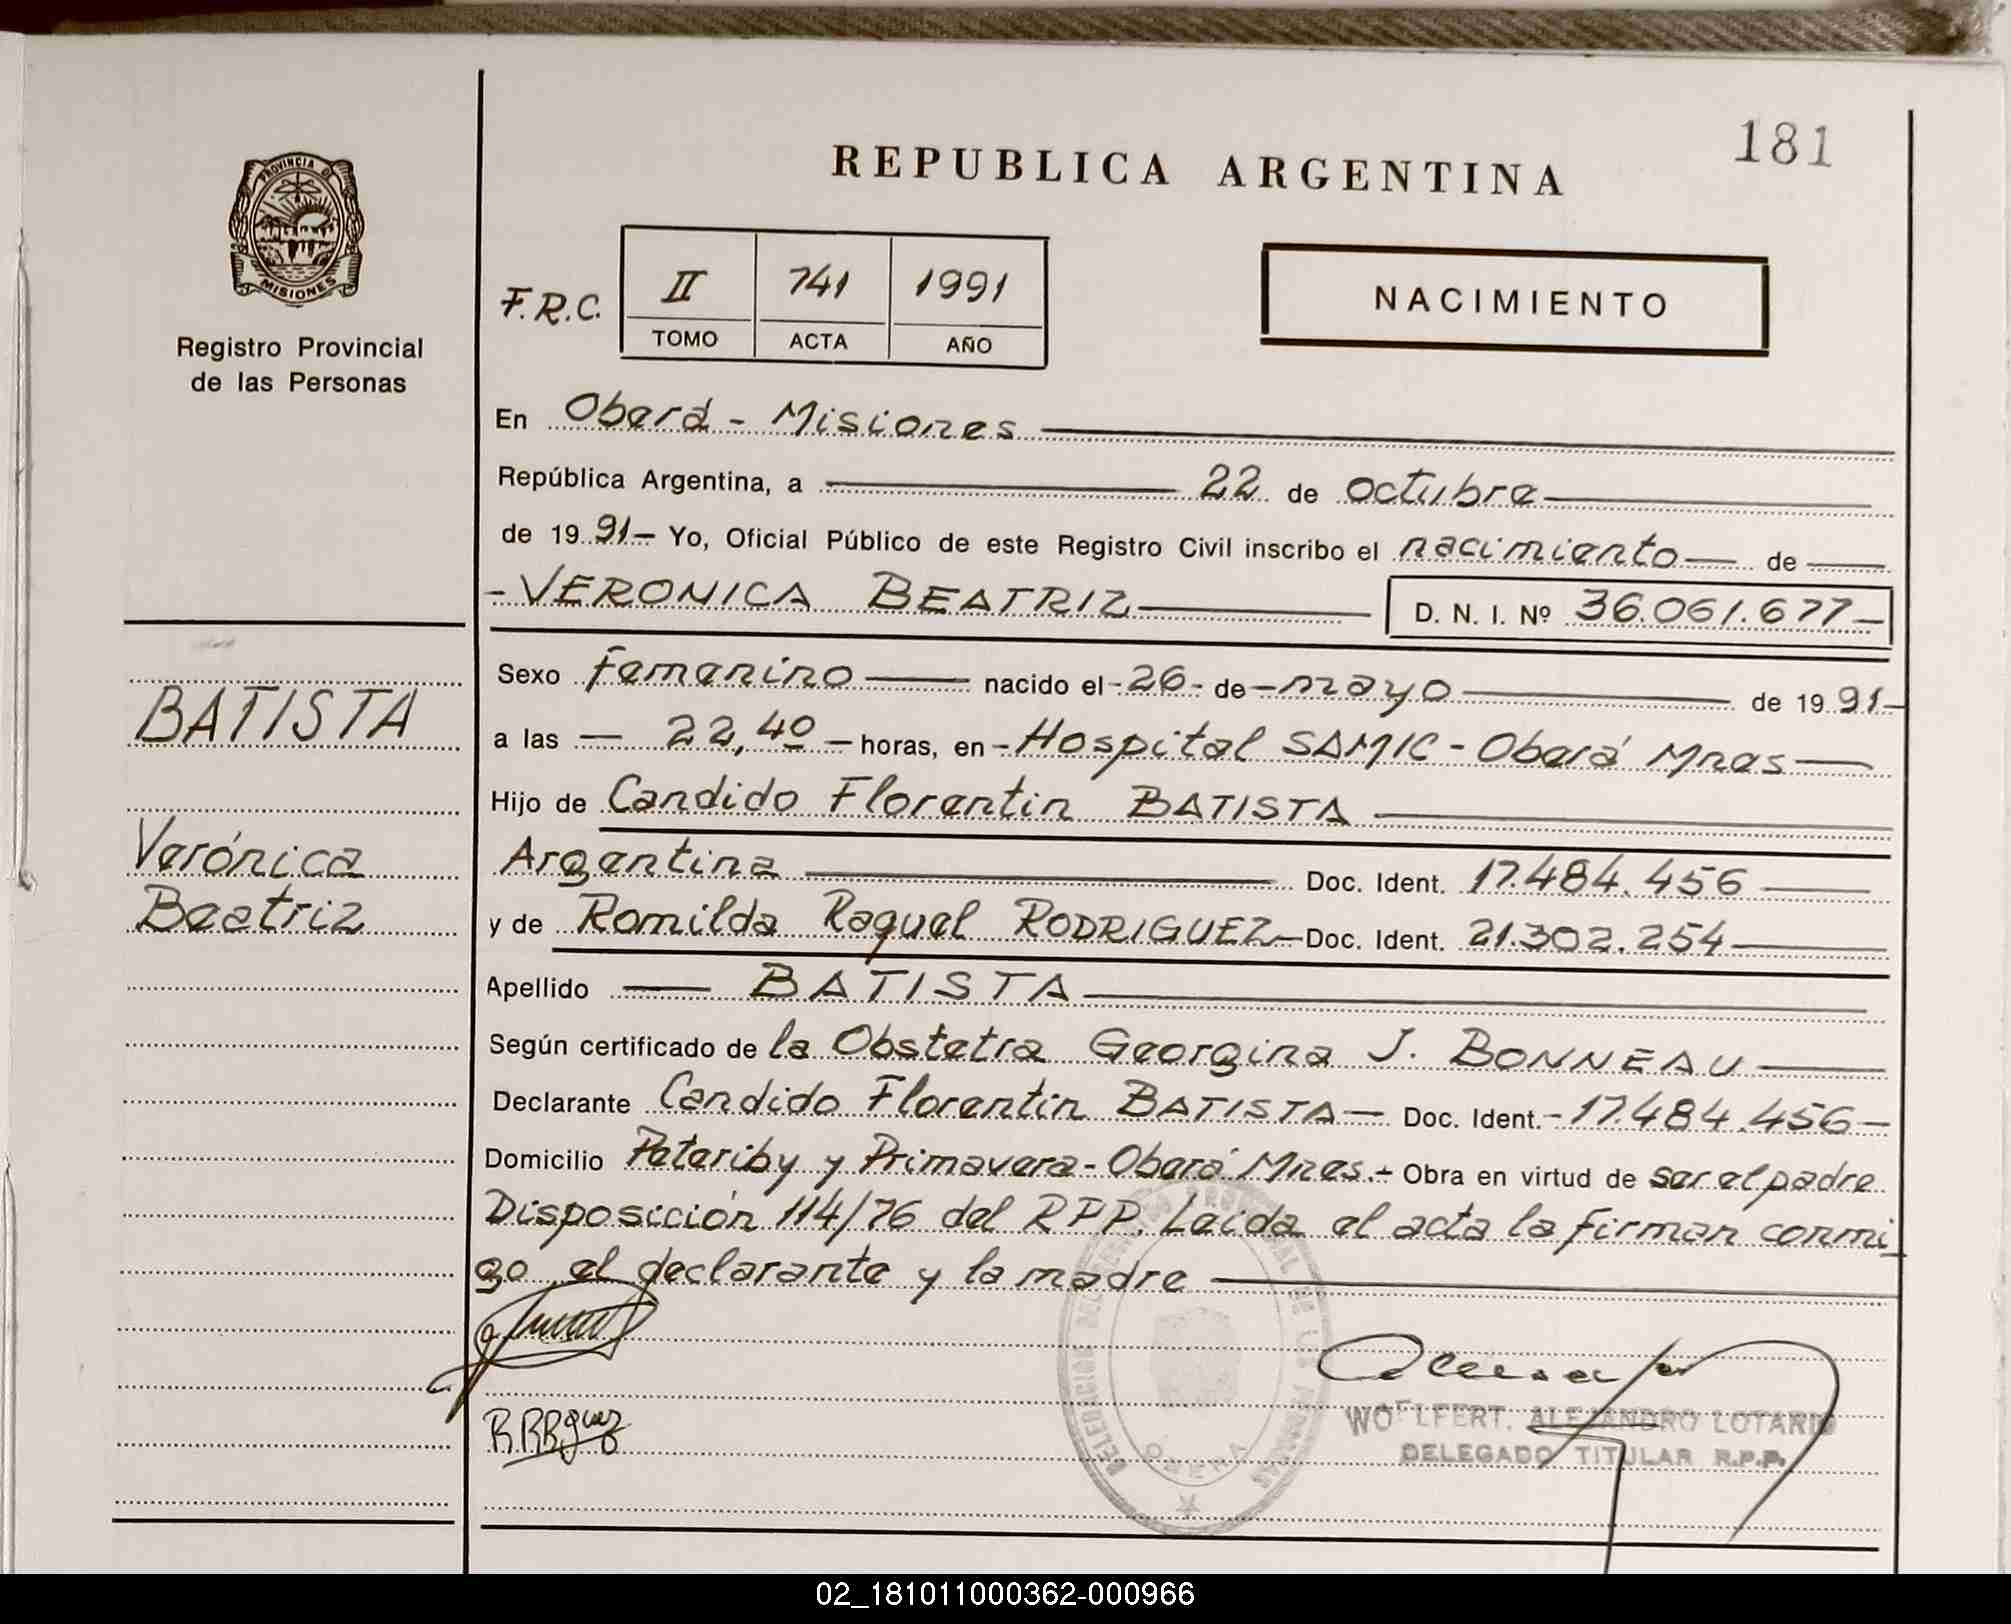 181
REPUBLICA ARGENTINA
PROVINCIA DE
MISIONES
Registro Provincial
de las Personas
F.R.C.
II 741 1991
TOMO ACTA AÑO
NACIMIENTO
En Oberá - Misiones
República Argentina, a 22 de octubre
de 19 91- Yo, Oficial Público de este Registro Civil inscribo el nacimiento de
- VERONICA BEATRIZ D. N. I. Nº 36.061.677-
Sexo femenino nacido el - 26 - de - mayo de 19 91-
a las 22,40 - horas, en - Hospital SAMIC - Oberá Mnes
Hijo de Candido Florentin BATISTA
Argentina Doc. Ident. 17.484.456
y de Romilda Raquel RODRIGUEZ Doc. Ident. 21.302.254
Apellido BATISTA
Según certificado de la Obstetra Georgina J. BONNEAU
Declarante Candido Florentin BATISTA Doc. Ident. - 17.484.456-
Domicilio Peteriby y Primavera - Oberá Mnes. - Obra en virtud de ser el padre
Disposición 114/76 del RPP. Leida el acta la firman conmi
go el declarante y la madre
BATISTA
Verónica
Beatriz
RRRguez
DELEGACION DEL REGISTRO PROVINCIAL DE LAS PERSONAS
OBERA
WOELFERT. ALEJANDRO LOTARIO
DELEGADO TITULAR R.P.P.
02_181011000362-000966